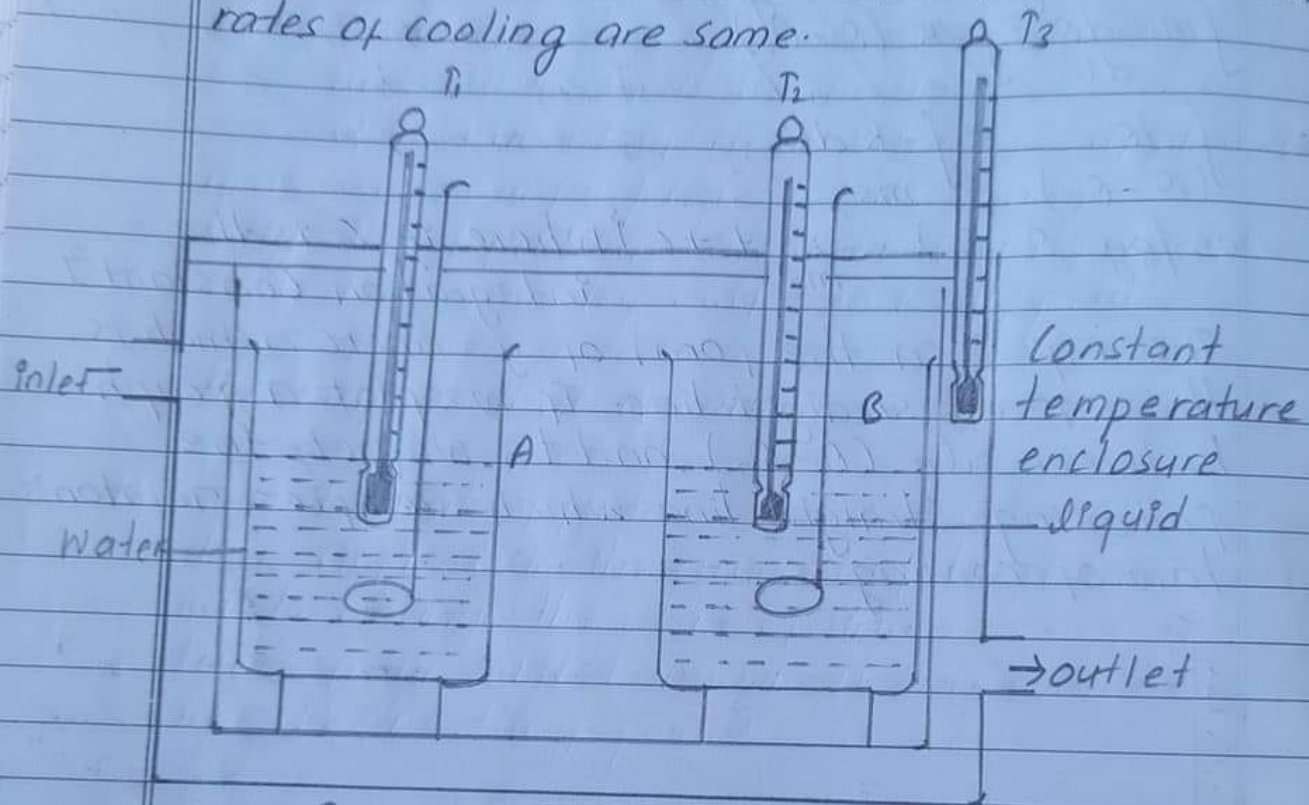 rates of cooling are same.
T1
T2
T3
inlet
A
B
Constant
temperature
enclosure
liquid
Water
→outlet